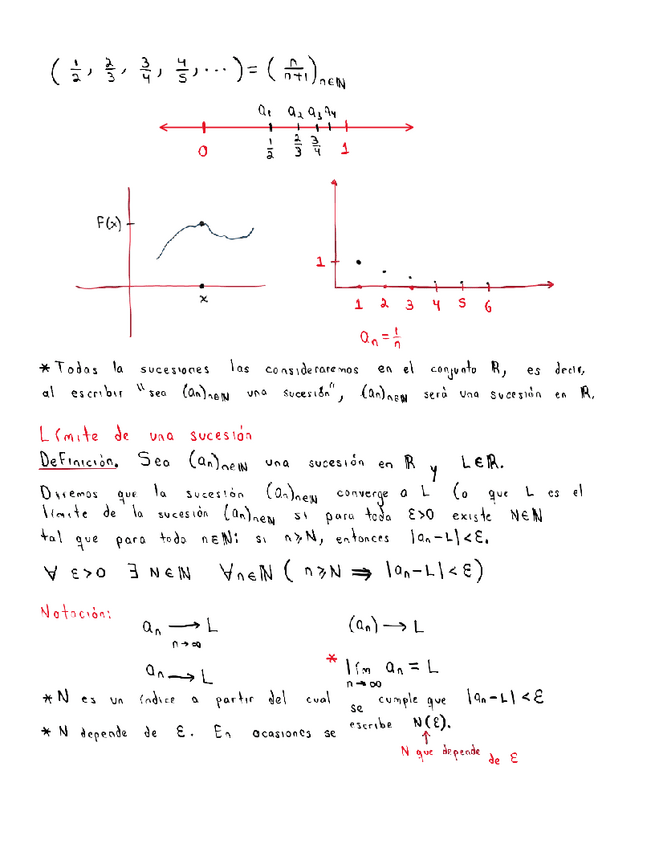 ( 1/2, 2/3, 3/4, 4/5, ... ) = ( n/n+1 )n∈ℕ
a₁ a₂ a₃ a₄
0 1/2 2/3 3/4 1
F(x)
x
1
1 2 3 4 5 6
aₙ = 1/n
* Todas la sucesiones las consideraremos en el conjunto ℝ, es decir,
al escribir "sea (aₙ)n∈ℕ una sucesión", (aₙ)n∈ℕ será una sucesión en ℝ.
Límite de una sucesión
Definición. Sea (aₙ)n∈ℕ una sucesión en ℝ y L∈ℝ.
Diremos que la sucesión (aₙ)n∈ℕ converge a L (o que L es el
límite de la sucesión (aₙ)n∈ℕ si para toda ε>0 existe N∈ℕ
tal que para todo n∈ℕ: si n≥N, entonces |aₙ-L|<ε.
∀ ε>0 ∃ N∈ℕ ∀n∈ℕ ( n≥N ⇒ |aₙ-L|<ε)
Notación:
aₙ → L n→∞
(aₙ) → L
aₙ → L
* lím aₙ = L n→∞
* N es un índice a partir del cual se cumple que |aₙ-L|<ε
* N depende de ε. En ocasiones se escribe N(ε).
N que depende de ε